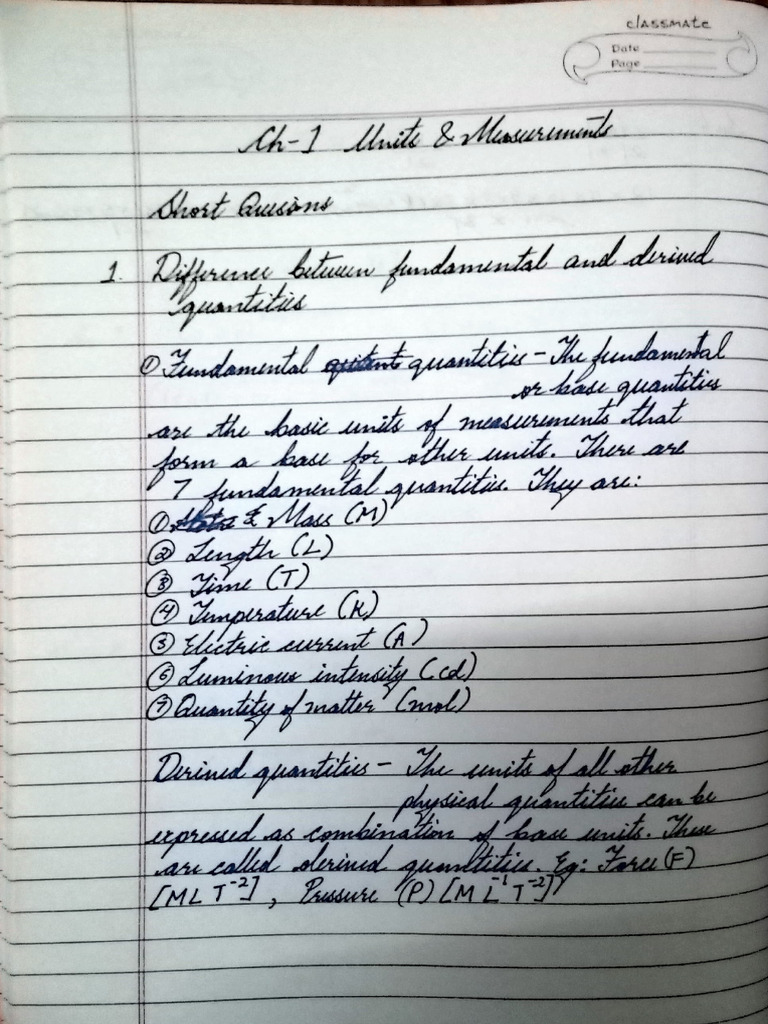 classmate
Date
Page
Ch-1 Units & Measurements
Short Quesions
1. Difference between fundamental and derived
quantities
① Fundamental quantities - The fundamental
or base quantities
are the basic units of measurements that
form a base for other units. There are
7 fundamental quantities. They are:
① Mass (M)
② Length (L)
③ Time (T)
④ Temperature (K)
⑤ Electric current (A)
⑥ Luminous intensity (cd)
⑦ Quantity of matter (mol)
Derived quantities - The units of all other
physical quantities can be
expressed as combination of base units. These
are called derived quantities. Eg: Force (F)
[M L T⁻²], Pressure (P) [M L⁻¹ T⁻²]